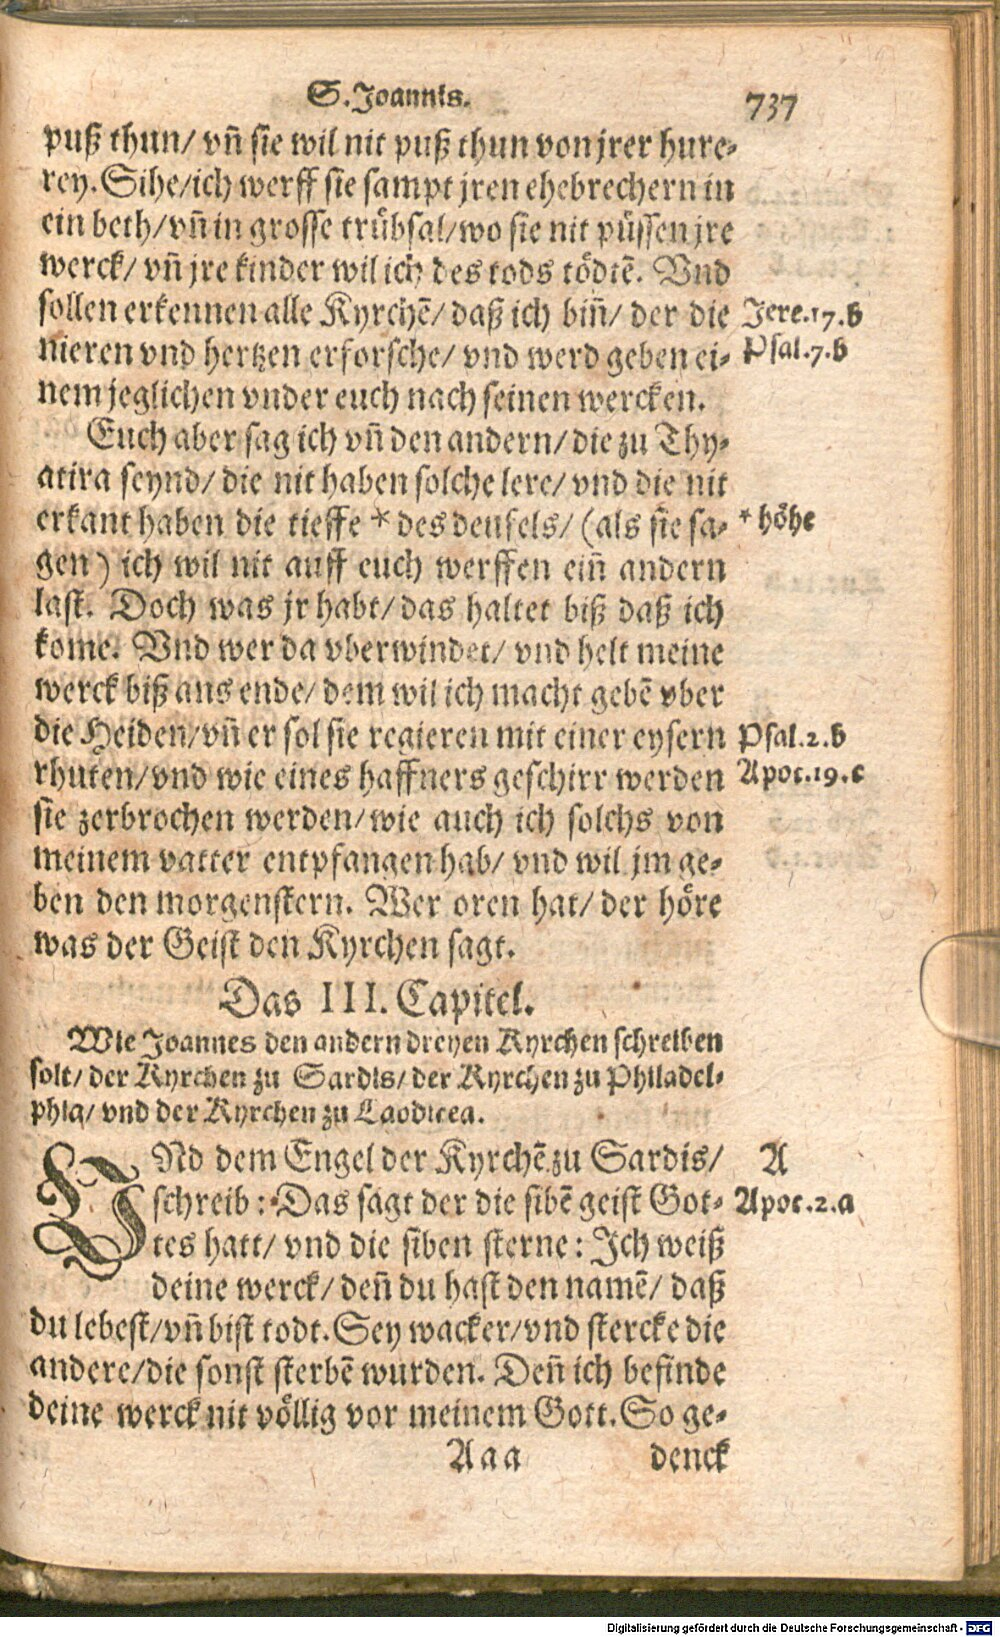 S. Joannis. 737
puß thun/ vñ sie wil nit puß thun von jrer hure-
rey. Sihe/ ich werff sie sampt jren ehebrechern in
ein beth/ vñ in grosse trübsal/ wo sie nit püssen jre
werck/ vñ jre kinder wil ich des tods tödtē. Vnd
sollen erkennen alle Kyrchē/ daß ich biñ/ der die Jere.17.b
nieren vnd hertzen erforsche/ vnd werd geben ei- Psal.7.b
nem jeglichen vnder euch nach seinen wercken.
Euch aber sag ich vñ den andern/ die zu Thy-
atira seynd/ die nit haben solche lere/ vnd die nit
erkant haben die tieffe * des deufels/ (als sie sa- * höhe
gen) ich wil nit auff euch werffen eiñ andern
last. Doch was jr habt/ das haltet biß daß ich
kome. Vnd wer da vberwindet/ vnd helt meine
werck biß ans ende/ dem wil ich macht gebē vber
die Heiden/ vñ er sol sie regieren mit einer eysern Psal.2.b
rhuten/ vnd wie eines haffners geschirr werden Apoc.19.c
sie zerbrochen werden/ wie auch ich solchs von
meinem vatter entpfangen hab/ vnd wil jm ge-
ben den morgenstern. Wer oren hat/ der höre
was der Geist den Kyrchen sagt.
Das III. Capitel.
Wie Joannes den andern dreyen Kyrchen schreiben
solt/ der Kyrchen zu Sardis/ der Kyrchen zu Philadel-
phia/ vnd der Kyrchen zu Laodicea.
VNd dem Engel der Kyrchē zu Sardis/ A
schreib: Das sagt der die sibē geist Got- Apoc.2.a
tes hatt/ vnd die siben sterne: Ich weiß
deine werck/ deñ du hast den namē/ daß
du lebest/ vñ bist todt. Sey wacker/ vnd stercke die
andere/ die sonst sterbē wurden. Deñ ich befinde
deine werck nit völlig vor meinem Gott. So ge-
Aaa denck
Digitalisierung gefördert durch die Deutsche Forschungsgemeinschaft - DFG